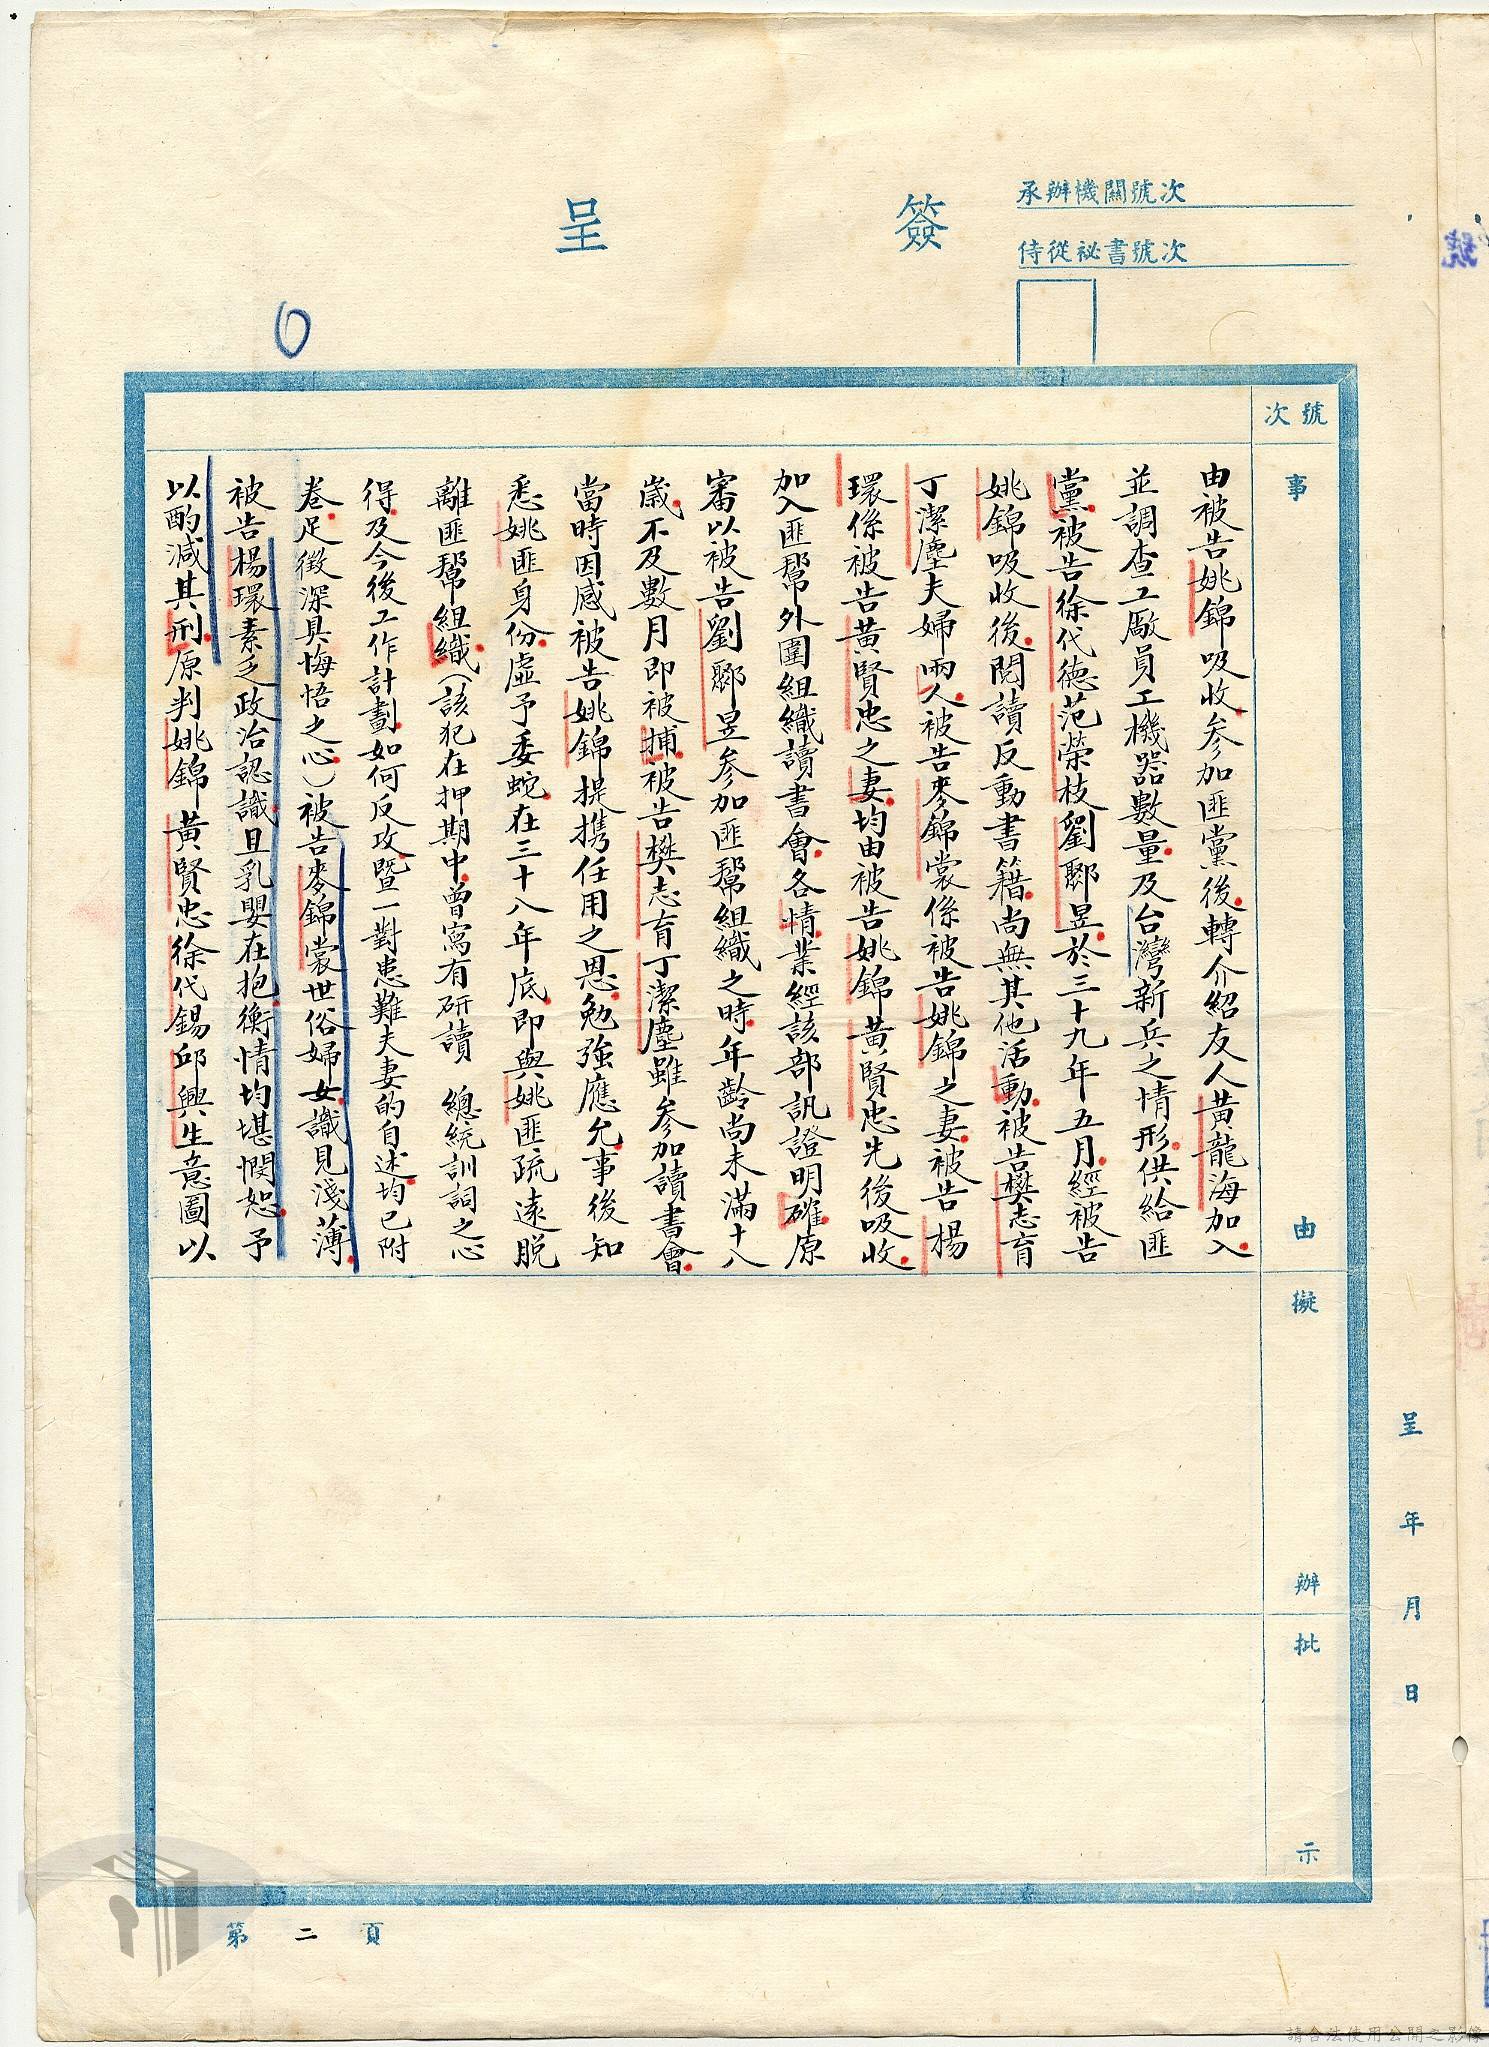 簽呈
承辦機關號次
侍從祕書號次
號次
事由
擬辦
批示
呈 年 月 日
由被告姚錦吸收參加匪黨後轉介紹友人黃龍海加入
並調查工廠員工機器數量及台灣新兵之情形供給匪
黨被告徐代德范榮枝劉鄹昱於三十九年五月經被告
姚錦吸收後閱讀反動書籍尚無其他活動被告樊志育
丁潔塵夫婦兩人被告麥錦裳係被告姚錦之妻被告楊
環係被告黃賢忠之妻均由被告姚錦黃賢忠先後吸收
加入匪幫外圍組織讀書會各情業經該部訊證明確原
審以被告劉鄹昱參加匪幫組織之時年齡尚未滿十八
歲不及數月即被捕被告樊志育丁潔塵雖參加讀書會
當時因感被告姚錦提携任用之恩勉強應允事後知
悉姚匪身份虛予委蛇在三十八年底即與姚匪疏遠脫
離匪幫組織（該犯在押期中曾寫有研讀 總統訓詞之心
得及今後工作計劃如何反攻暨一對患難夫妻的自述均已附
卷足徵深具悔悟之心）被告麥錦裳世俗婦女識見淺薄
被告楊環素乏政治認識且乳嬰在抱衡情均堪憫恕予
以酌減其刑原判姚錦黃賢忠徐代錫邱興生意圖以
第二頁
請合法使用公開之影像